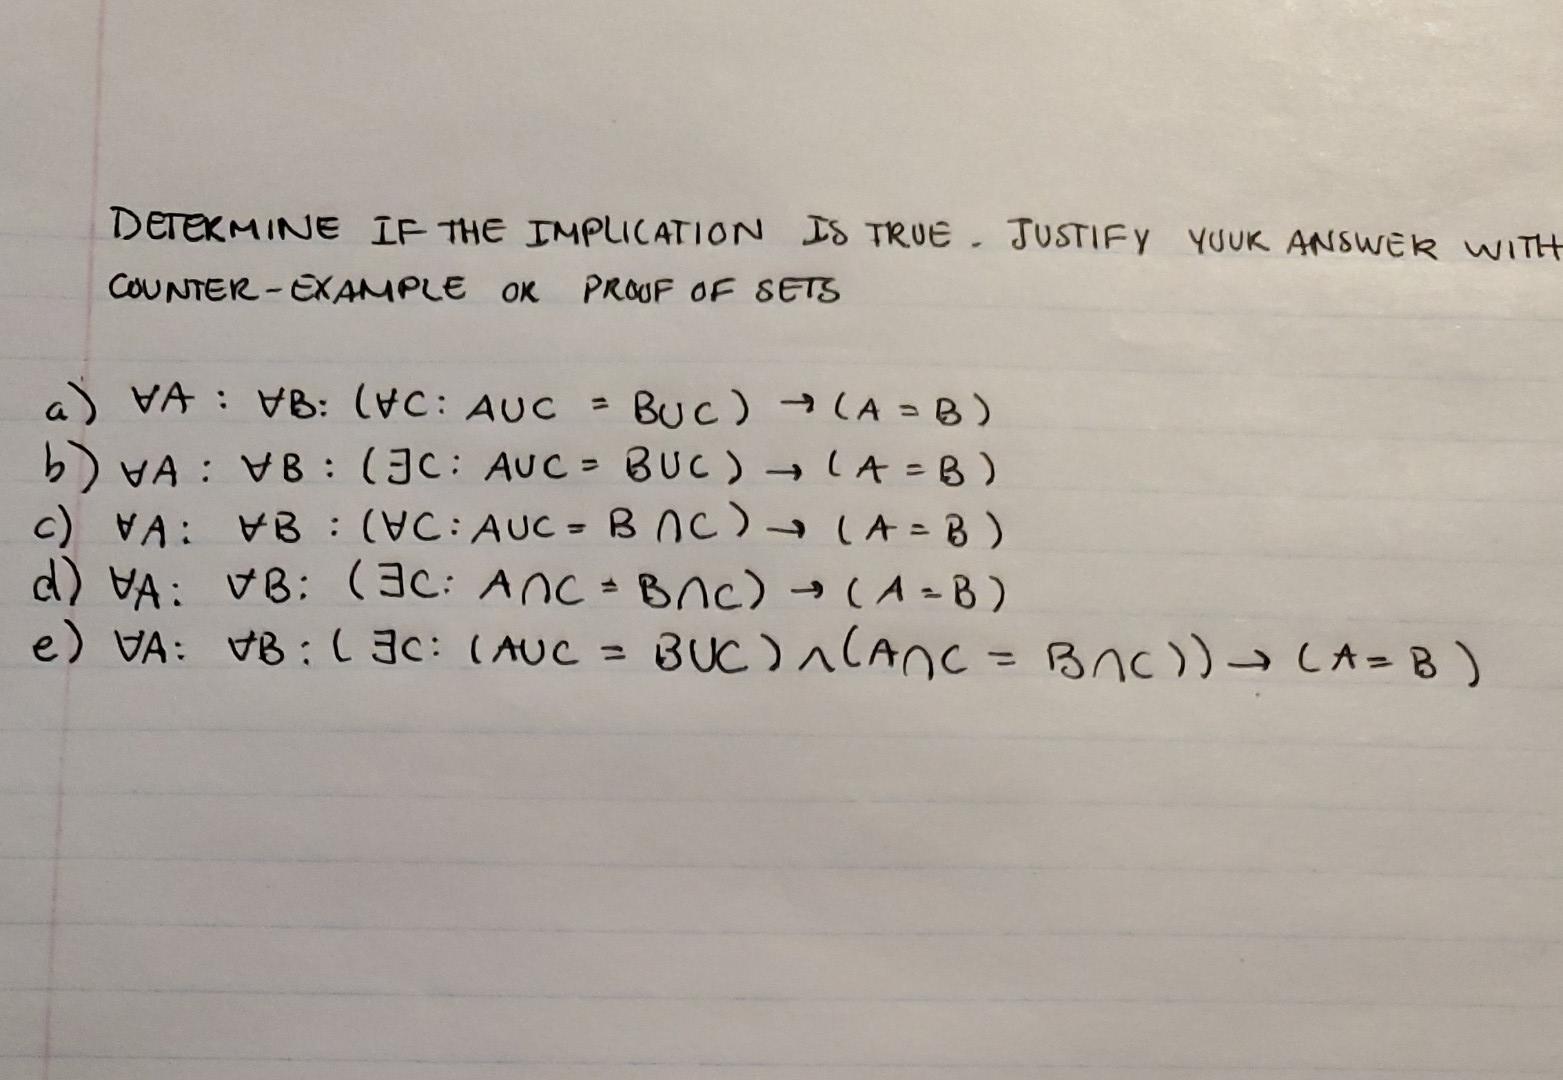 DETERMINE IF THE IMPLICATION IS TRUE. JUSTIFY YOUR ANSWER WITH
COUNTER-EXAMPLE OR PROOF OF SETS
a) ∀A : ∀B: (∀C: A∪C = B∪C) → (A = B)
b) ∀A : ∀B : (∃C: A∪C = B∪C) → (A = B)
c) ∀A: ∀B : (∀C: A∪C = B∩C) → (A = B)
d) ∀A: ∀B: (∃C: A∩C = B∩C) → (A = B)
e) ∀A: ∀B: (∃C: (A∪C = B∪C) ∧ (A∩C = B∩C)) → (A = B)